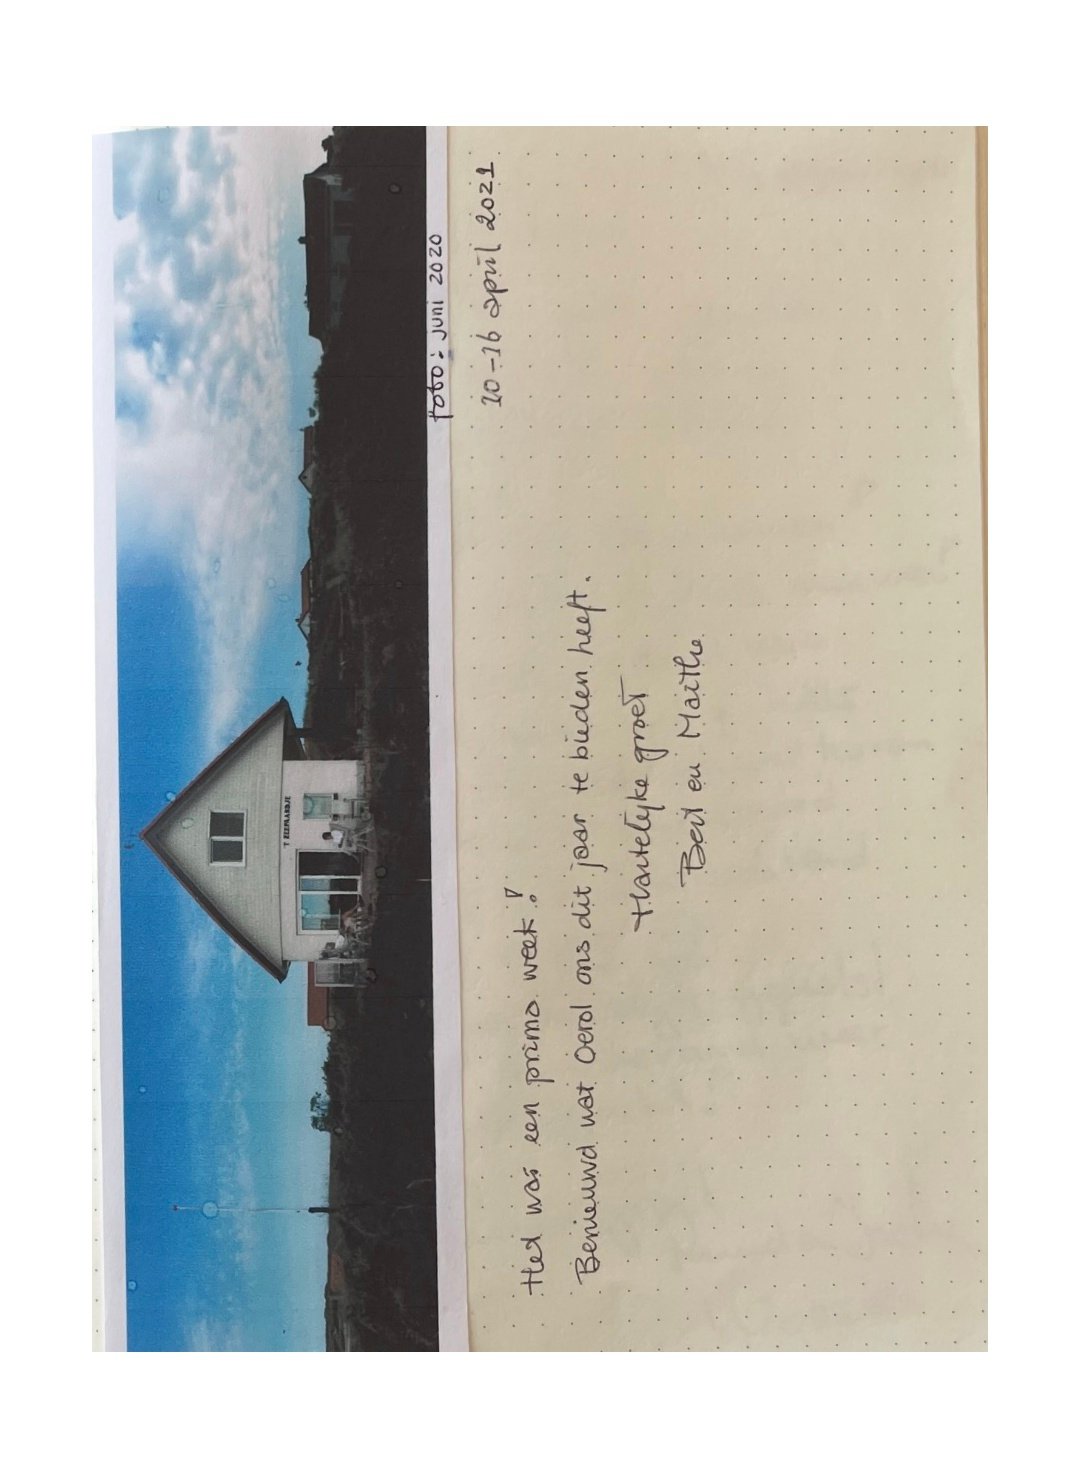 'T ZEEPAARDJE
foto: juni 2020
10-16 april 2021
Het was een prima week!
Benieuwd wat Oerol ons dit jaar te bieden heeft.
Hartelijke groet
Bert en Maithe